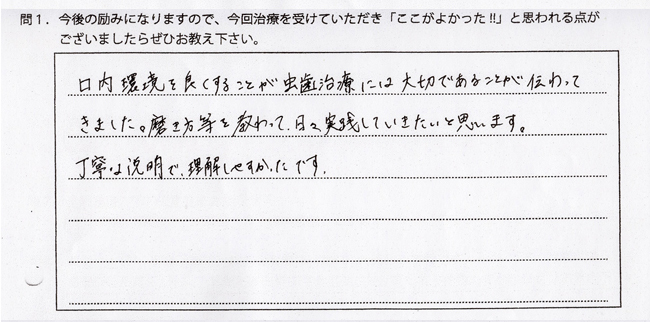 問1．今後の励みになりますので、今回治療を受けていただき「ここがよかった!!」と思われる点が
ございましたらぜひお教え下さい。
口内環境を良くすることが虫歯治療には大切であることが伝わって
きました。磨き方等を教わって、日々実践していきたいと思います。
丁寧な説明で、理解しやすかったです。